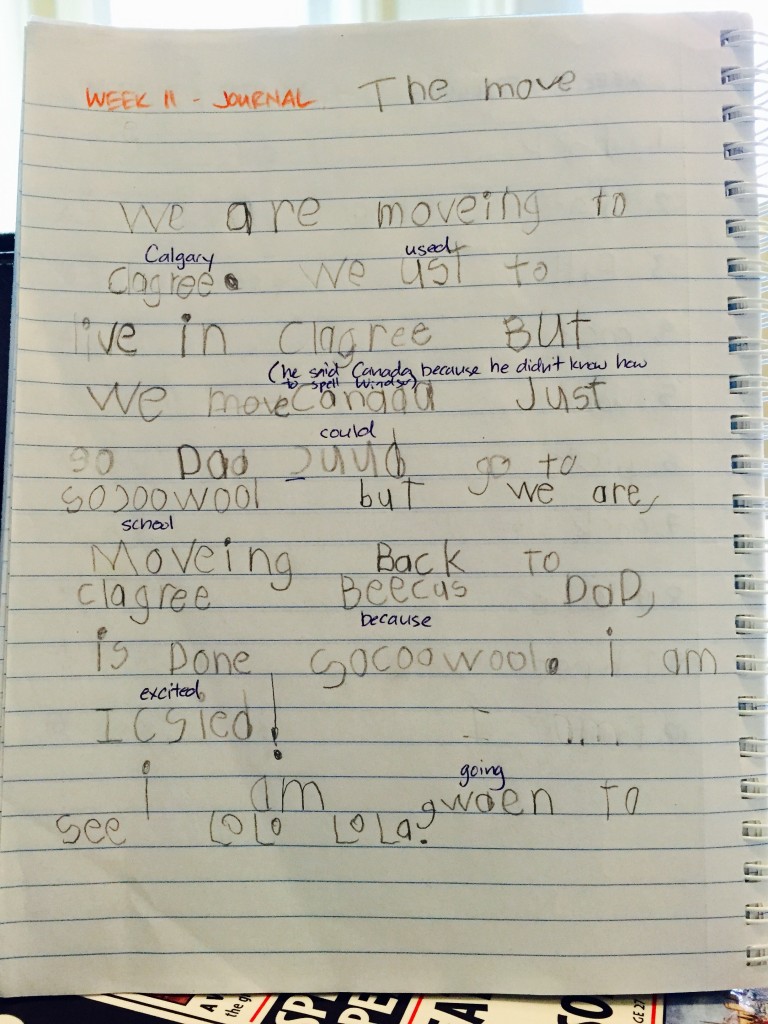 WEEK 11 - JOURNAL The move
We are moveing to
Calgary used
clagree. We ust to
live in clagree BUT
(he said Canada because he didn't know how
to spell Windsor)
We move Canada Just
could
so Dad cuud go to
socoowool but we are,
school
Moveing Back To
clagree Beecus DaD,
because
is Done socoowool. i am
excited
ICSIed!
going
i am gwoen To
see LoLo LoLa.